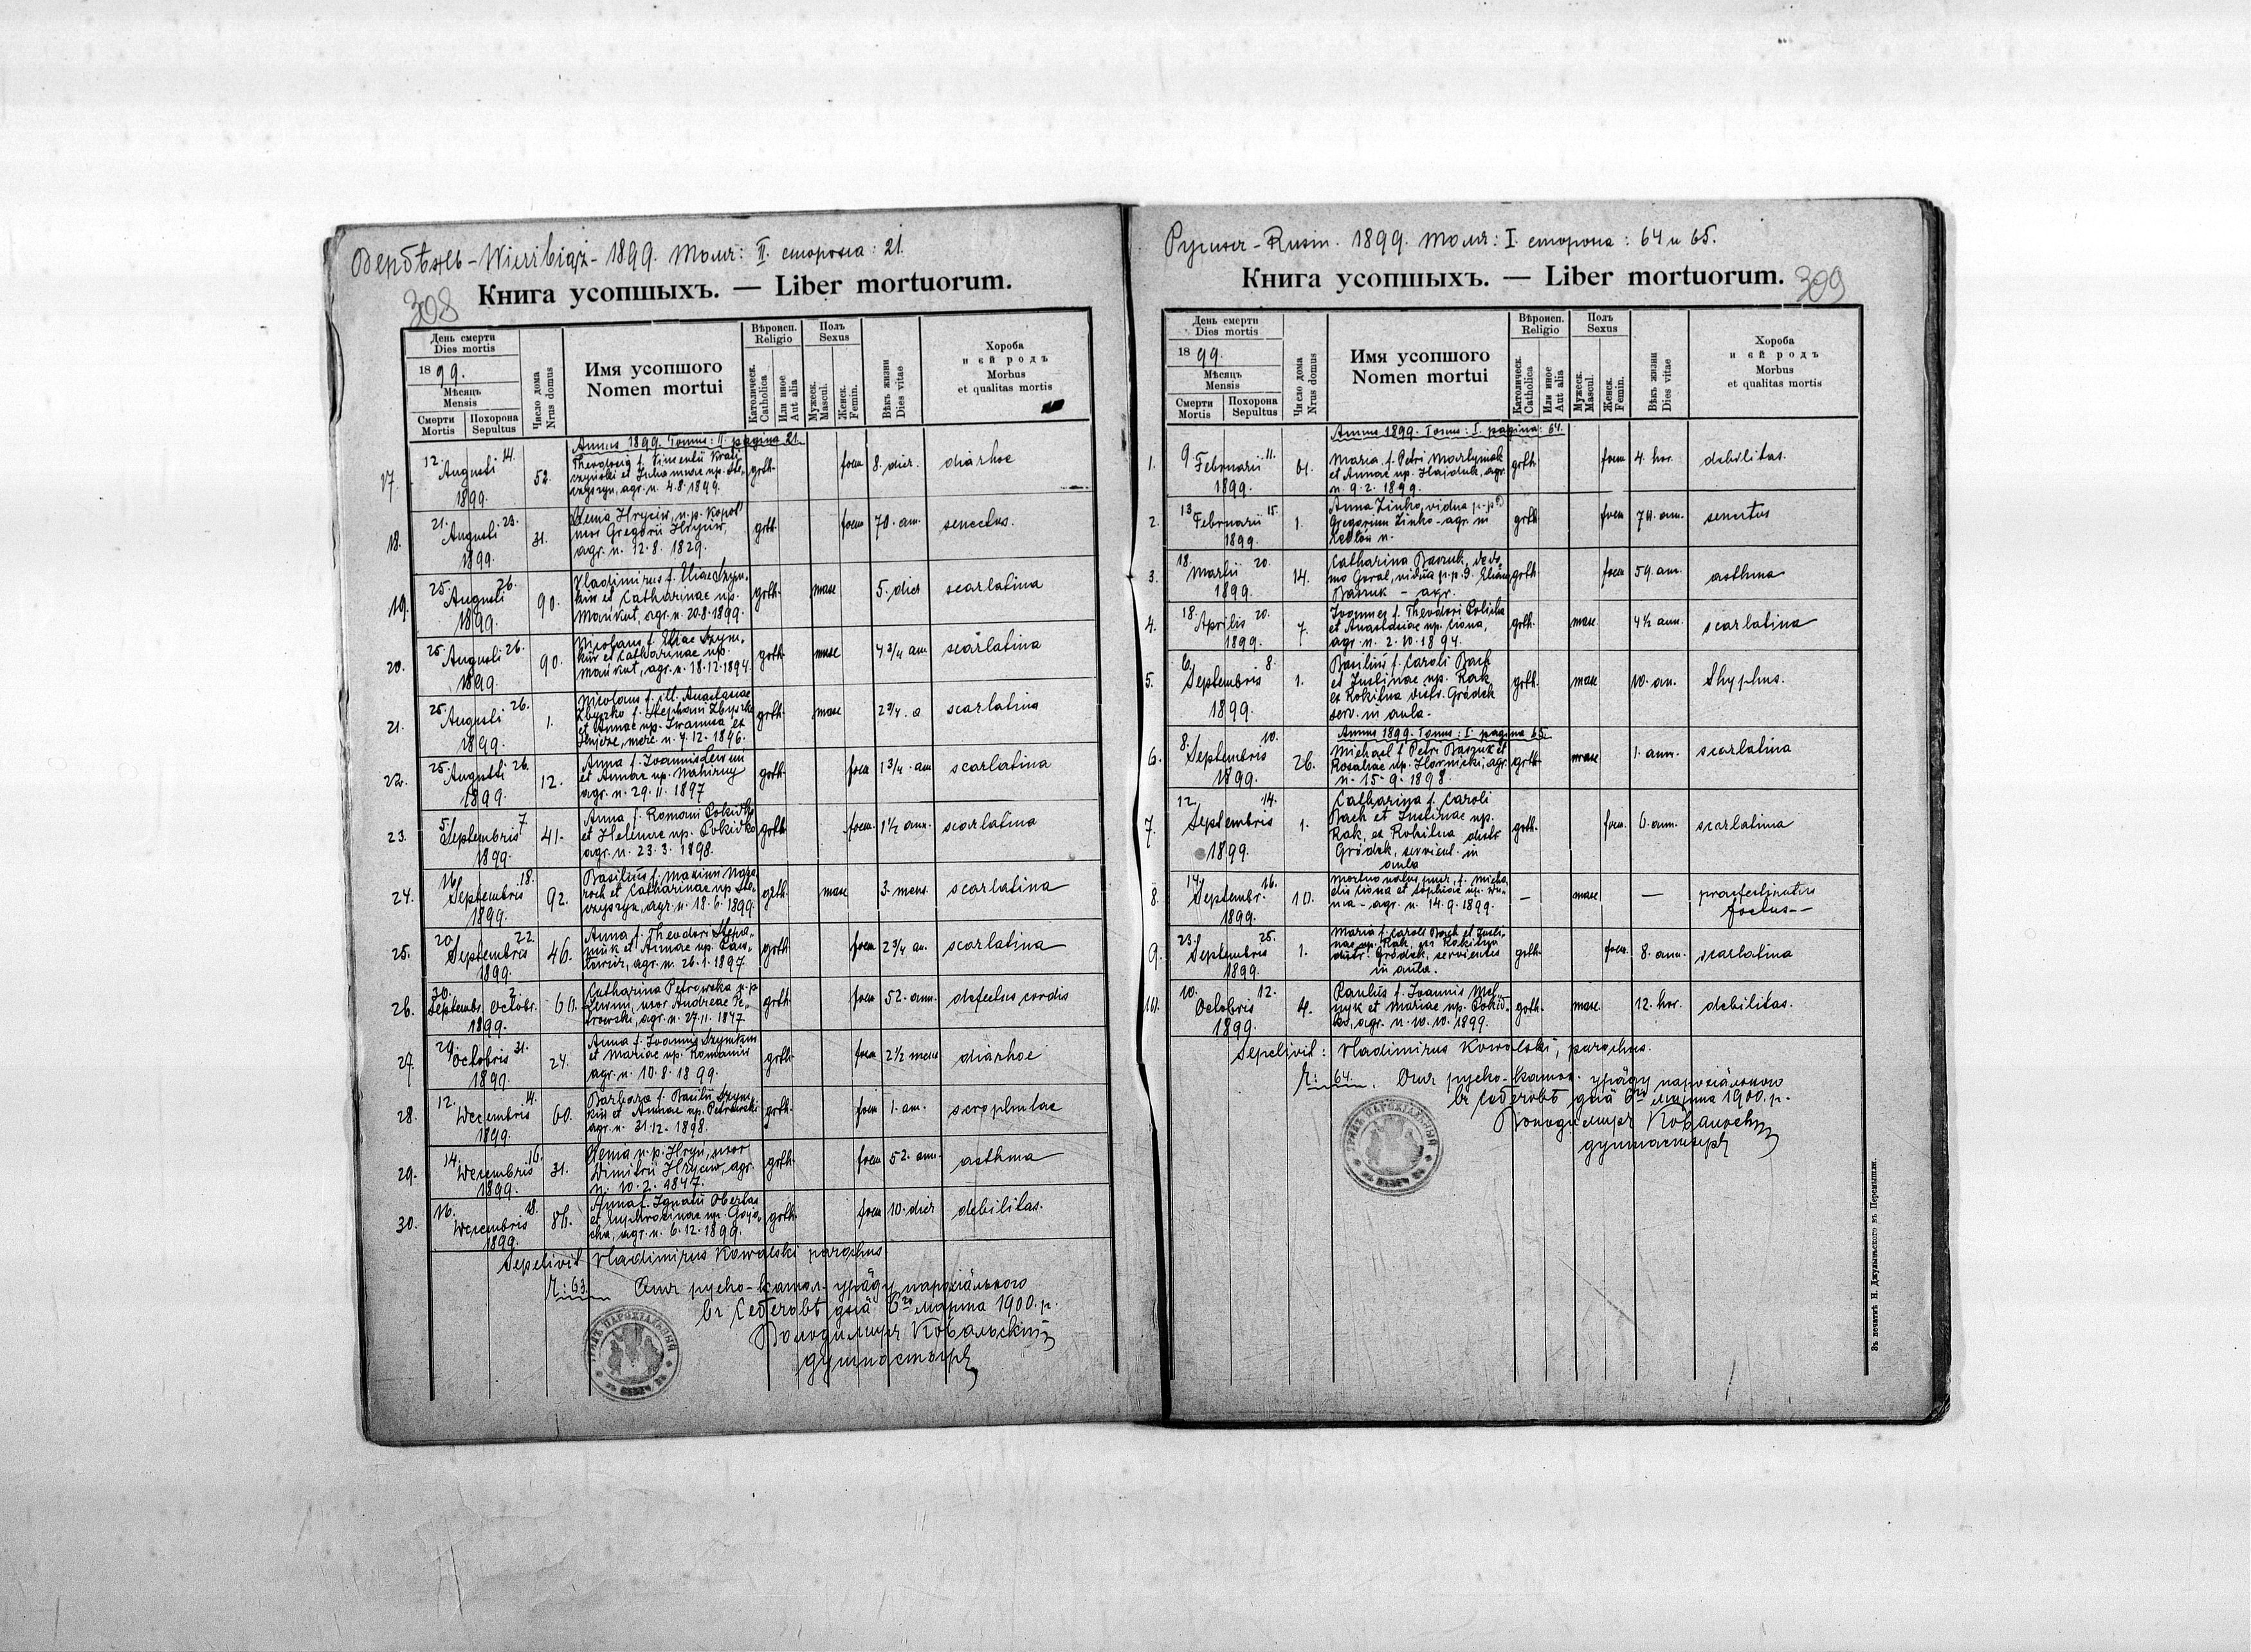 Вербѣжъ - Wierzbiąż - 1899. Томъ: II. сторона: 21.
308
Книга усопшыхъ. — Liber mortuorum.
День смерти
Dies mortis
1899.
Мѣсяцъ
Mensis
Смерти
Mortis
Похорона
Sepultus
Число дома
Nrus domus
Имя усопшого
Nomen mortui
Вѣроисп.
Religio
Католическ.
Catholica
Или иное
Aut alia
Полъ
Sexus
Мужеск.
Mascul.
Женск.
Femin.
Вѣкъ жизни
Dies vitae
Хороба
и єй родъ
Morbus
et qualitas mortis
Annus 1899. Tomus: II. pagina 21.
17. 12. Augusti 14. 1899. 52.
Theodosia f.
agr. n. 4.8.1899.
grcth. foem 8. dier. diarhoe
18. 21. Augusti 23. 1899. 31.
Xenia Hryciw, n.p.
uxor Gregorii Hryciw,
agr. n. 12.8.1829.
grcth. foem 70. an. senectus.
19. 25. Augusti 26. 1899. 90.
Vladimirus f. Iliae Szym-
kiw et Catharinae np.
agr. n. 20.8.1899.
grcth. masc 5. dies scarlatina
20. 25. Augusti 26. 1899. 90.
Nicolaus f. Iliae Szym-
kiw et Catharinae np.
agr. n. 18.12.1894
grcth. masc 4 3/4 an scarlatina
21. 25. Augusti 26. 1899. 1.
Nicolaus f. ill. Anastasiae
Zbyszko f. Stephani Zbyszko
et Annae np. Iwanusa ex
n. 7.12.1896.
grcth. masc 2 3/4. a scarlatina
22. 25. Augusti 26. 1899. 12.
Anna f. Joannis
et Annae np. Nahirny
agr. n. 29.11.1897
grcth. foem 1 3/4. an scarlatina
23. 5. Septembris 7. 1899. 41.
Anna f. Romani Pokidko
et Helenae np. Pokidko
agr. n. 23.3.1898.
grcth. foem. 1 1/2 ann. scarlatina
24. 16. Septembris 18. 1899. 92.
Basilius f. Maximi
et Catharinae np
agr. n. 18.6.1899.
grcth. masc 3. mens. scarlatina
25. 20. Septembris 22. 1899. 46.
Anna f. Theodori Stepa-
niuk et Annae np.
agr. n. 26.1.1897
grcth. foem 2 3/4 an. scarlatina
26. 30. Septembr. 2. Octobr. 1899. 60.
Catharina Petrowska n.p
uxor Andreae Pe-
trowski, agr. n. 27.11.1847
grcth. foem 52. ann. defectus cordis
27. 29. Octobris 31. 1899. 24.
Anna f. Joannis Szymkiw
et Mariae np. Romaniw
agr. n. 10.8.1899.
grcth. foem 2 1/2 mens diarhoe
28. 12. Decembris 14. 1899. 60.
Barbara f. Basilii Szym-
kiw et Annae np. Petrowski
agr. n. 31.12.1898.
grcth. foem 1. an. scrophulae
29. 14. Decembris 16. 1899. 31.
Xenia n.p. Hryń, uxor
Dimitrii Hryciw, agr.
n. 10.2.1847.
grcth. foem 52. ann. asthma
30. 16. Decembris 18. 1899.
Anna f. Ignatii
et Euphrosinae np.
agr. n. 6.12.1899.
grcth. foem 10. dier debilitas.
Sepelivit Vladimirus Kowalski parochus
Ч: 63. Отъ руско-катол. уряду парохіального
въ Седеговѣ дня 6го марта 1900. р.
Володимиръ Ковальскій
душпастырь
Русинъ - Rusin. 1899. Томъ: I. сторона: 64 и 65.
Книга усопшыхъ. — Liber mortuorum.
309
День смерти
Dies mortis
1899.
Мѣсяцъ
Mensis
Смерти
Mortis
Похорона
Sepultus
Число дома
Nrus domus
Имя усопшого
Nomen mortui
Вѣроисп.
Religio
Католическ.
Catholica
Или иное
Aut alia
Полъ
Sexus
Мужеск.
Mascul.
Женск.
Femin.
Вѣкъ жизни
Dies vitae
Хороба
и єй родъ
Morbus
et qualitas mortis
Annus 1899. Tomus: I. pagina: 64.
1. 9. Februarii 11. 1899. 61.
Maria f. Petri Martyniak
et Annae np. Hajduk, agr.
n. 9.2.1899.
grcth. foem 4. hor. debilitas.
2. 13. Februarii 15. 1899. 1.
Anna Zinko, vidua p.p.
Gregorium Zinko - agr. in
n.
grcth foem 74. an. senectus
3. 18. Martii 20. 1899. 14.
Catharina Baszuk, de do-
mo Goral, vidua p.p.d. Eliam
Baszuk - agr.
grcth. foem 59. an. asthma
4. 18. Aprilis 20. 1899. 7.
Joannes f. Theodori Policha
et Anastasiae np. Ciona,
agr. n. 2.10.1894.
grcth. masc. 4 1/2 ann. scarlatina
5. 6. Septembris 8. 1899. 1.
Basilius f. Caroli Bach
et Justinae np. Rak
ex Rokitna distr. Gródek
serv. in aula.
grcth. masc 10. an. thyphus.
Annus 1899. Tomus: I. pagina 65.
6. 8. Septembris 10. 1899. 26.
Michael f. Petri Baszuk et
Rosaliae np. Hornicki, agr.
n. 15.9.1898.
grcth. masc 1. ann. scarlatina
7. 12. Septembris 14. 1899. 1.
Catharina f. Caroli
Bach et Justinae np.
Rak, ex Rokitna distr.
Gródek, servient. in
aula
grcth. foem. 6. ann. scarlatina
8. 14. Septembr. 16. 1899. 10.
Mortuo natus puer, f. Micha-
elis Ciona et Sophiae np.
agr. n. 14.9.1899.
— masc —
foetus--
9. 23. Septembris 25. 1899. 1.
Maria f. Caroli Bach et Justi-
nae np. Rak, ex Rokitna
distr. Gródek, servientes
in aula.
grcth. foem. 8. ann. scarlatina
10. 10. Octobris 12. 1899. 4.
Paulus f. Joannis Mel-
nyk et Mariae np. Pokid-
ko, agr. n. 10.10.1899.
grcth. masc. 12. hor. debilitas.
Sepelivit: Vladimirus Kowalski, parochus.
Ч: 64. Отъ руско-катол. уряду парохіального
въ Седеговѣ дня 6го марта 1900. р.
Володимиръ Ковальскій
душпастырь
Зъ печатнѣ Н. Джулыньского въ Перемышли.